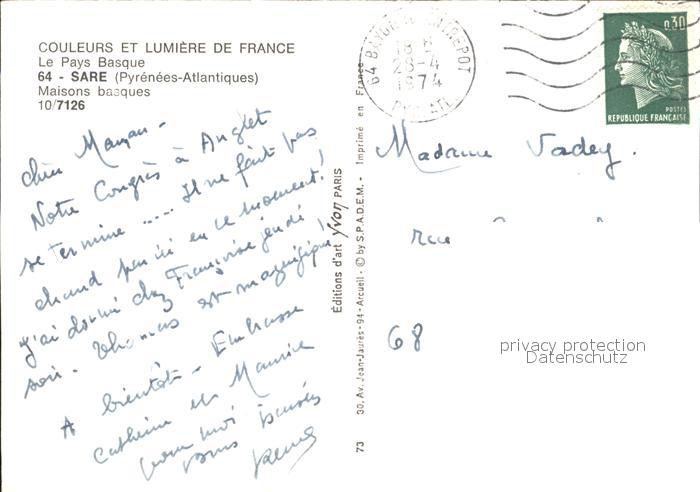 COULEURS ET LUMIÈRE DE FRANCE
Le Pays Basque
64 - SARE (Pyrénées-Atlantiques)
Maisons basques
10/7126
chère Maman -
Notre Congrès à Anglet
se termine .... Il ne fait pas
chaud par ici en ce moment!
j'ai dormi chez Françoise jeudi
soir. Thomas est magnifique!
A bientôt - Embrasse
Catherine et Maurice
pour moi
Éditions d'art yvon PARIS
30, Av. Jean-Jaurès - 94 - Arcueil - © by S.P.A.D.E.M. - Imprimé en France
73
64 BAYONNE ENTREPOT
18 H
29-4
1974
PYR. ATL.
0,30
POSTES
REPUBLIQUE FRANÇAISE
Madame Vadey.
rue
68
privacy protection
Datenschutz